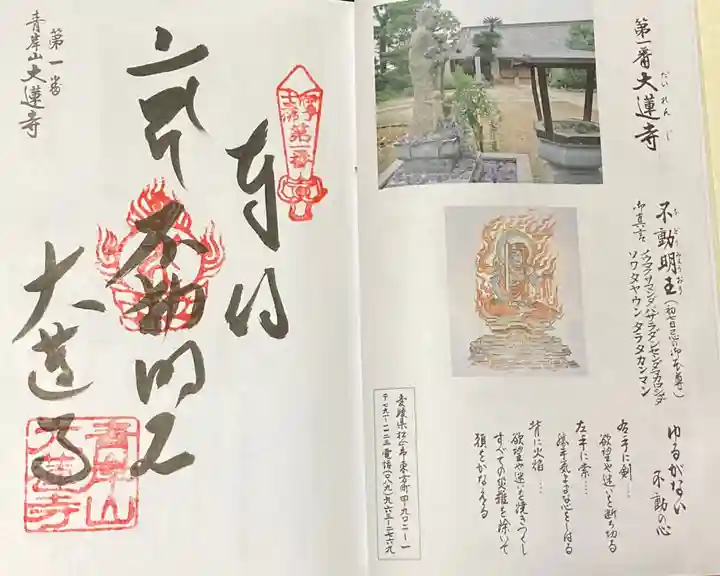 第一番大蓮寺
だいれんじ
不動明王（初七日忌の御本尊）
ふどうみょうおう
御真言
ノウマクサマンダバザラダンセンダマカロシャダ
ソワタヤウン タラタカンマン
ゆるがない
不動の心
右手に剣…
欲望や迷いを断ち切る
左手に索…
勝手気ままな心をしばる
背に火焔…
欲望や迷いを焼きつくし
すべての災難を除いて
願をかなえる
愛媛県松山市東方町甲九〇二ー一
〒七九一ー一一二三 電話（〇八九）九六三ー二七六九
伊予十三佛
第一番
奉拝
不動明王
大蓮寺
第一番
青岸山大蓮寺
青岸山
大蓮寺